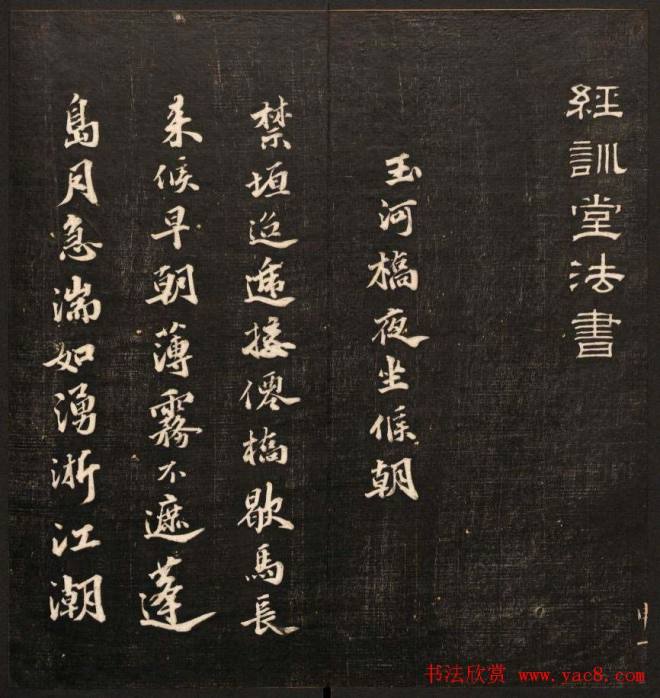 經訓堂法書
玉河橋夜坐候朝
禁垣迢遞接僊橋歇馬長
来候早朝薄霧不遮蓬
島月急湍如湧浙江潮
书法欣赏 www.yac8.com